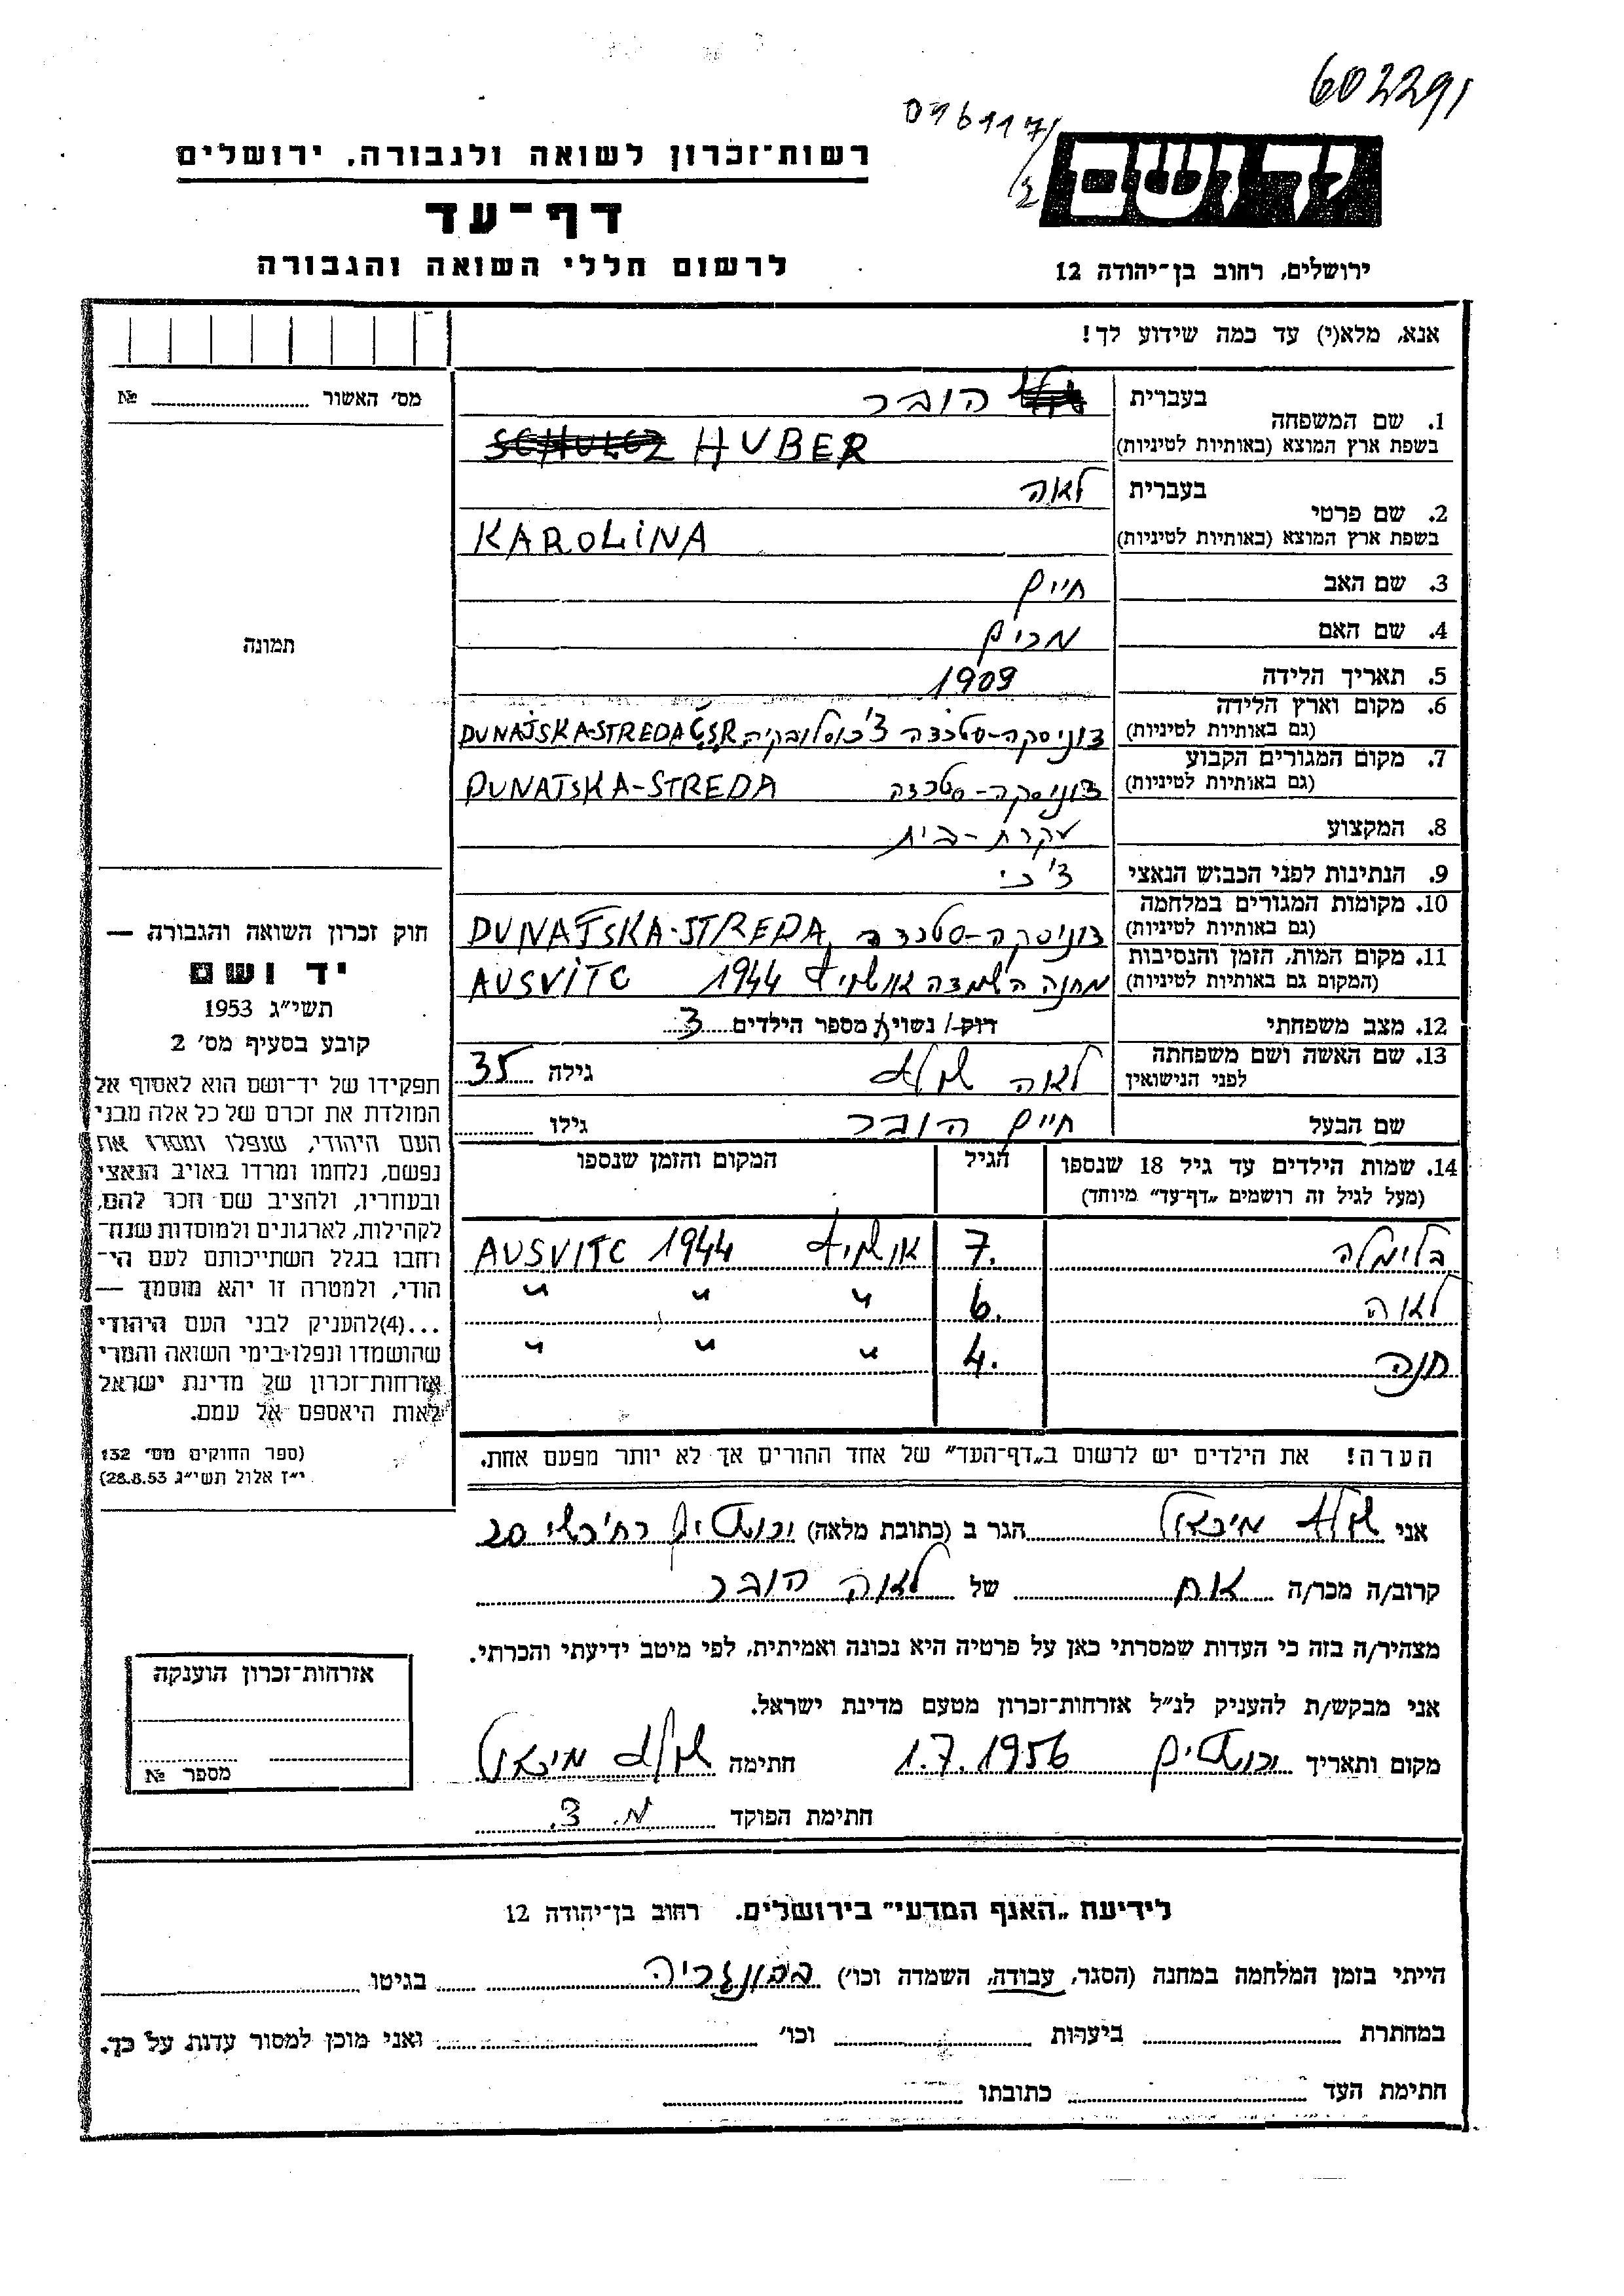 602291
076117/
/2
יד ושם
רשות־זכרון לשואה ולגבורה, ירושלים
דף־עד
לרשום חללי השואה והגבורה
ירושלים, רחוב בן־יהודה 12
אנא, מלא(י) עד כמה שידוע לך!
מס׳ האשור № 
1. שם המשפחה
בעברית הובר
בשפת ארץ המוצא (באותיות לטיניות) SCHULCZ HUBER
2. שם פרטי
בעברית לאה
בשפת ארץ המוצא (באותיות לטיניות) KAROLINA
3. שם האב חיים
4. שם האם מרים
5. תאריך הלידה 1909
6. מקום וארץ הלידה (גם באותיות לטיניות) דוניסקה-סטרדה צ'כוסלובקיה DUNAJSKA-STREDA ČSR
7. מקום המגורים הקבוע (גם באותיות לטיניות) דוניסקה-סטרדה DUNAJSKA-STREDA
8. המקצוע עקרת-בית
9. הנתינות לפני הכבוש הנאצי צ'כי
10. מקומות המגורים במלחמה (גם באותיות לטיניות) דוניסקה-סטרדה, DUNAJSKA-STREDA
11. מקום המות, הזמן והנסיבות (המקום גם באותיות לטיניות) מחנה השמדה אושויץ 1944 AUSVITC
12. מצב משפחתי רוק/ נשוי/ה מספר הילדים 3
13. שם האשה ושם משפחתה לפני הנישואין לאה שולץ גילה 35
שם הבעל חיים הובר גילו
14. שמות הילדים עד גיל 18 שנספו (מעל לגיל זה רושמים „דף־עד״ מיוחד) הגיל המקום והזמן שנספו
בלימלה 7. אושויץ 1944 AUSVITC
לאה 6. " " "
חנה 4. " " "
הערה! את הילדים יש לרשום ב„דף־העד״ של אחד ההורים אך לא יותר מפעם אחת.
תמונה
חוק זכרון השואה והגבורה —
יד ושם
תשי״ג 1953
קובע בסעיף מס׳ 2
תפקידו של יד־ושם הוא לאסוף אל
המולדת את זכרם של כל אלה מבני
העם היהודי, שנפלו ומסרו את
נפשם, נלחמו ומרדו באויב הנאצי
ובעוזריו, ולהציב שם וזכר להם,
לקהילות, לארגונים ולמוסדות שנח־
רחבו בגלל השתייכותם לעם הי־
הודי, ולמטרה זו יהא מוסמך —
...(4)להעניק לבני העם היהודי
שהושמדו ונפלו בימי השואה והמרי
אזרחות־זכרון של מדינת ישראל
לאות היאספם אל עמם.
(ספר החוקים מס׳ 132
י״ז אלול תשי״ג 28.8.53)
אני שולץ מיכאל הגר ב (כתובת מלאה) 20
קרוב/ה מכר/ה אח של לאה הובר
מצהיר/ה בזה כי העדות שמסרתי כאן על פרטיה היא נכונה ואמיתית, לפי מיטב ידיעתי והכרתי.
אני מבקש/ת להעניק לנ״ל אזרחות־זכרון מטעם מדינת ישראל.
מקום ותאריך 1.7.1956 חתימה שולץ מיכאל
חתימת הפוקד
אזרחות־זכרון הוענקה
מספר №
לידיעת „האגף המדעי״ בירושלים. רחוב בן־יהודה 12
הייתי בזמן המלחמה במחנה (הסגר, עבודה, השמדה וכו׳) בהונגריה בגיטו
במחתרת ביערות וכו׳ ואני מוכן למסור עדות על כך.
חתימת העד כתובתו